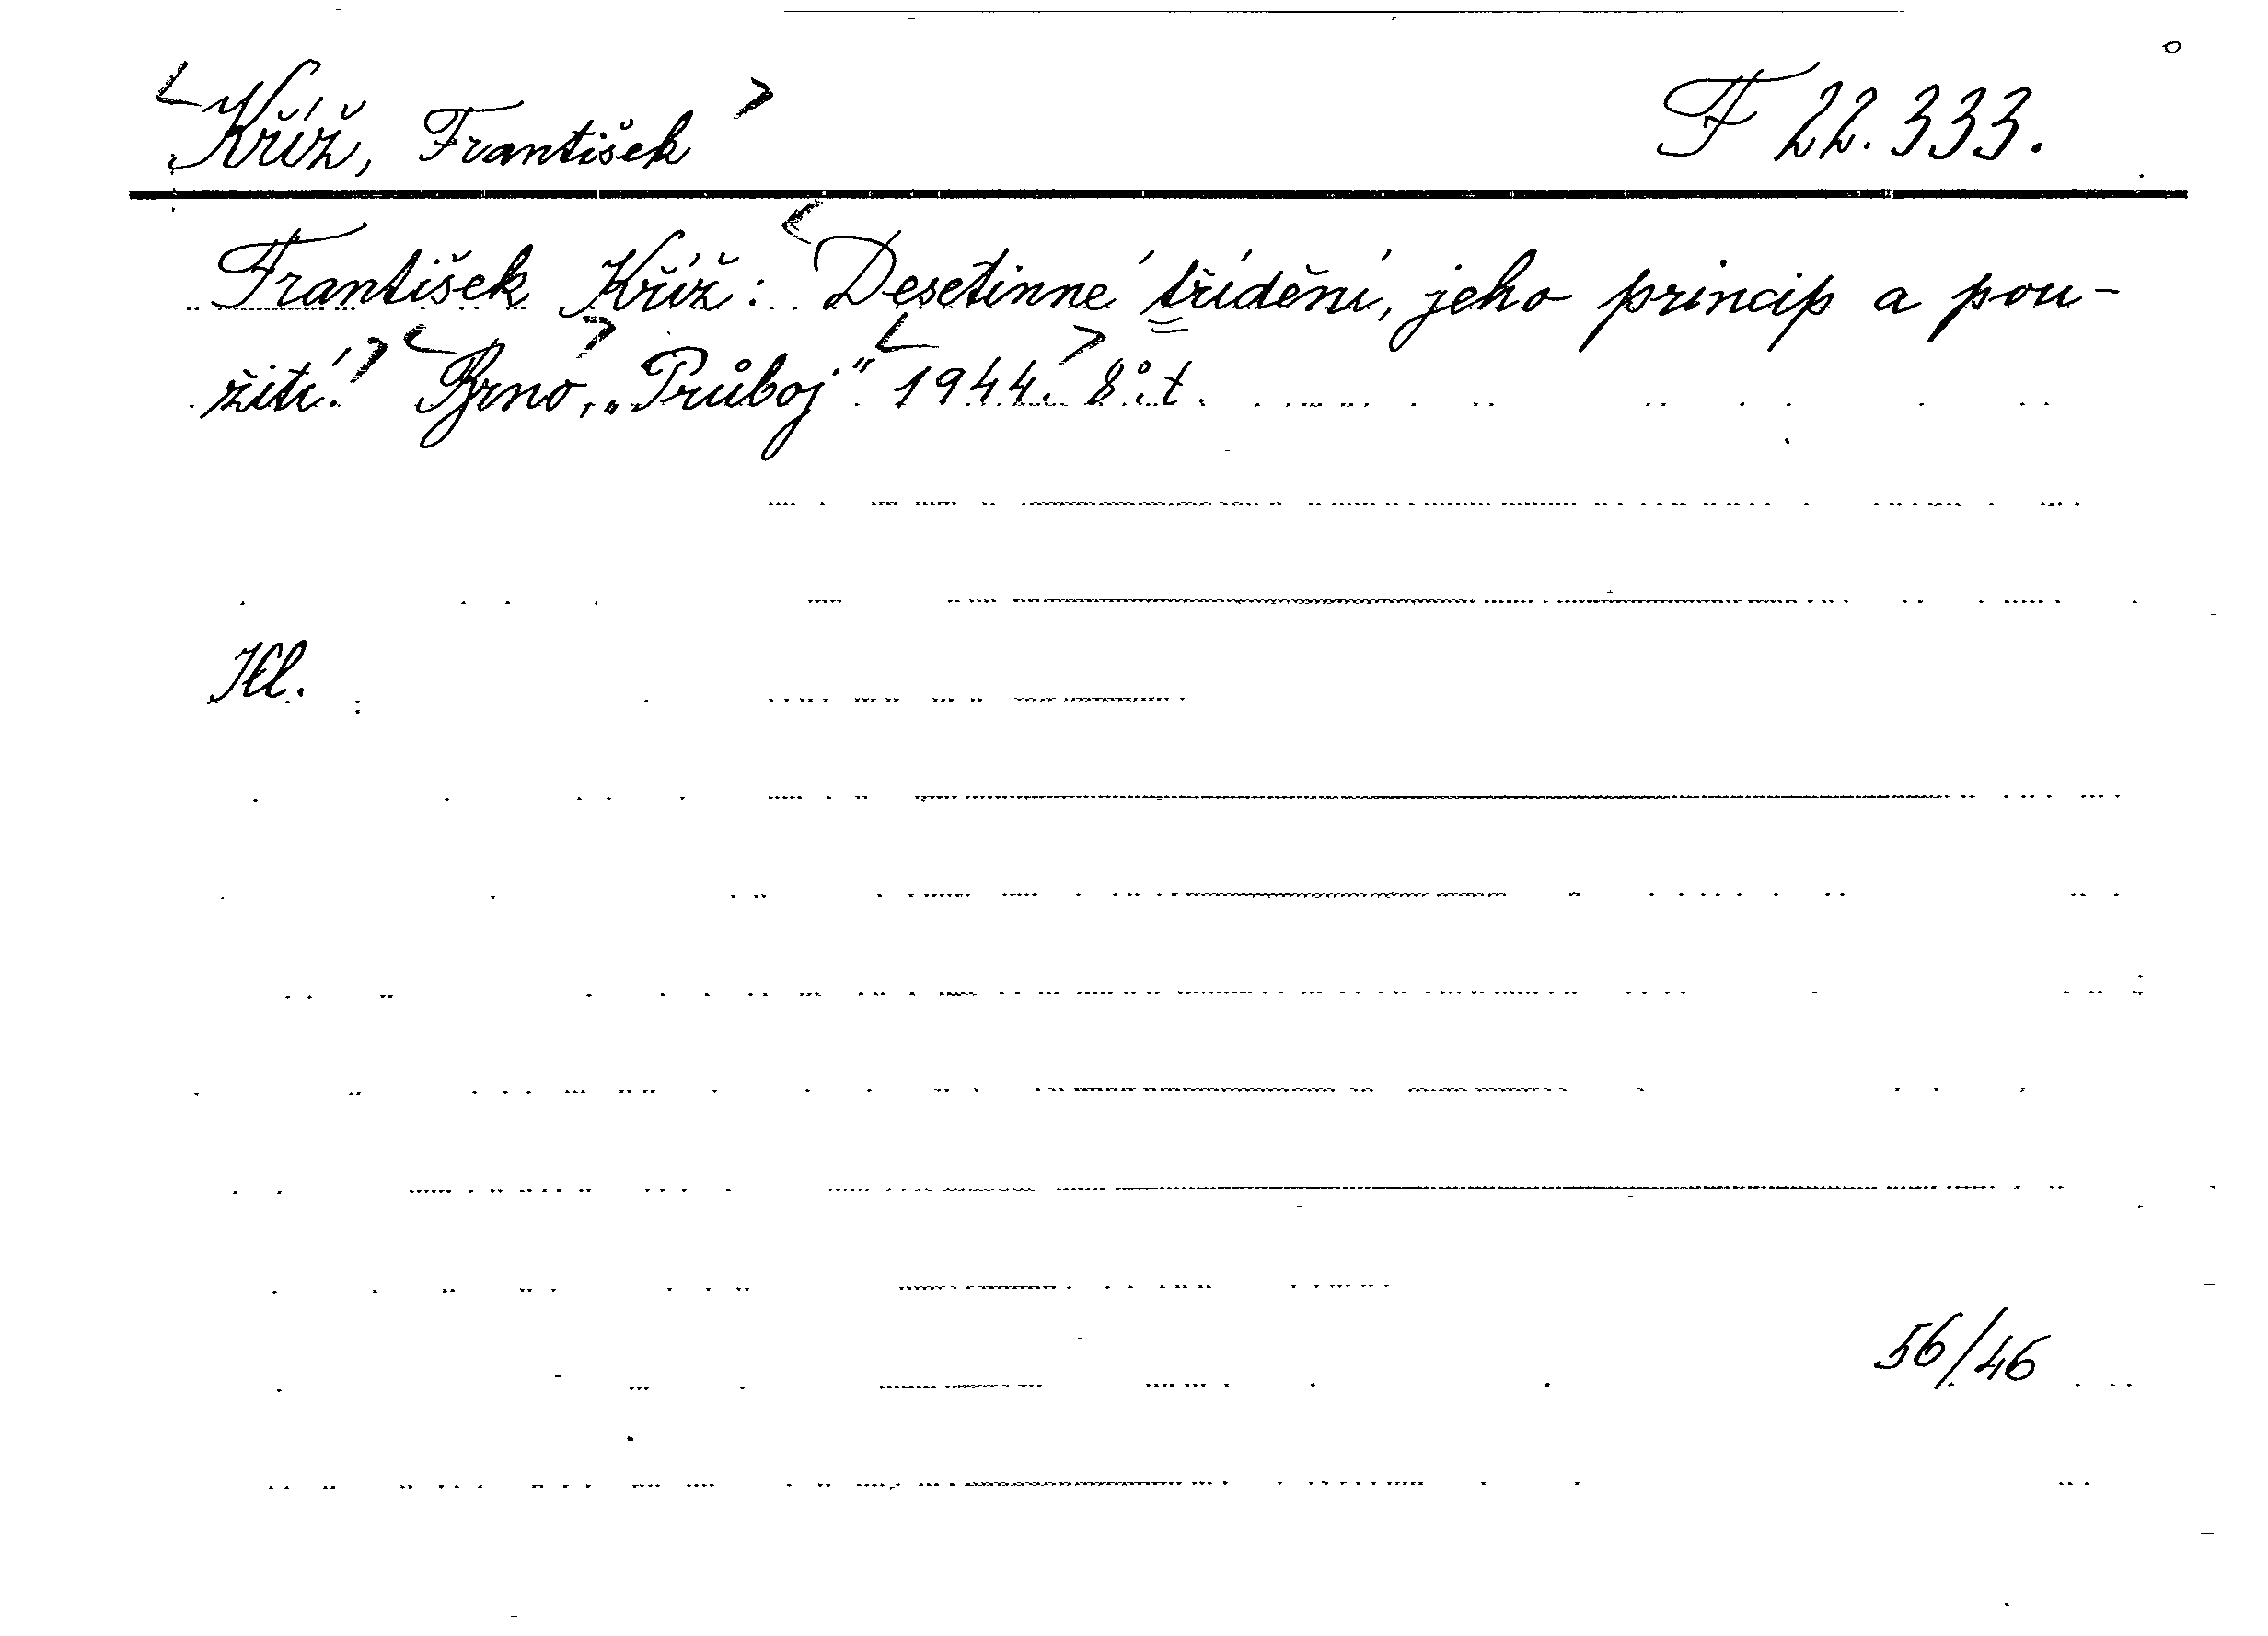 <Kříž, František> F 22.333.
František Kříž: <Desetinné třídění, jeho princip a pou-
žití.> <Brno>, „Průboj" <1944.> 8°. t.
Kl.
56/46